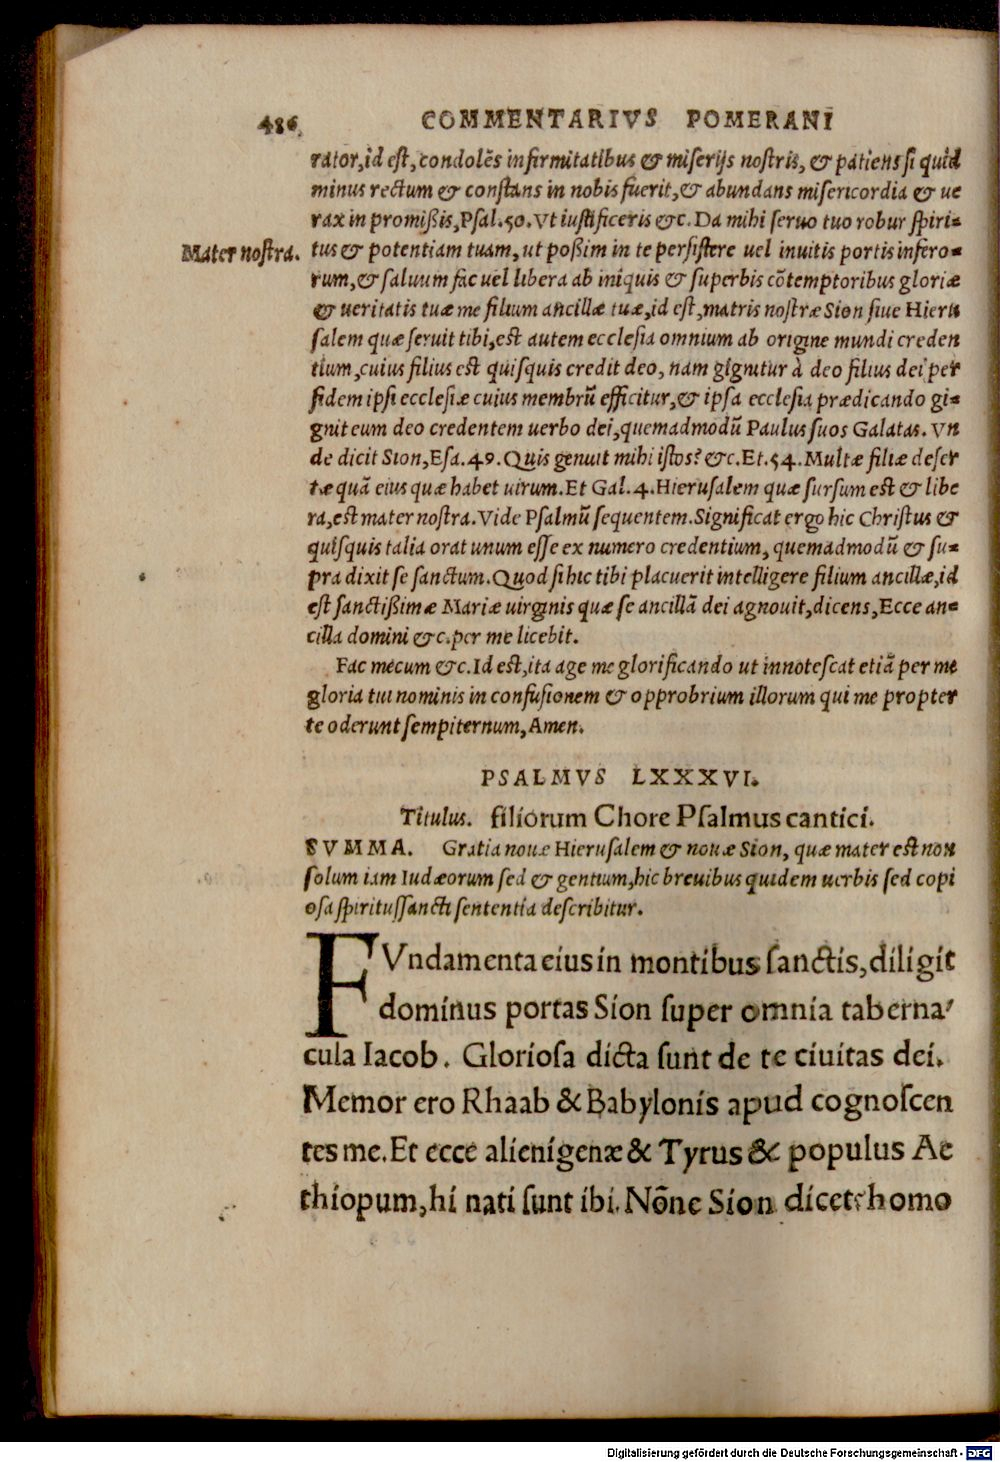 486 COMMENTARIVS POMERANI
rator,id est,condolēs infirmitatibus & miserijs nostris, & patiens si quid
minus rectum & constans in nobis fuerit,& abundans misericordia & ue
rax in promißis,Psal.50.Vt iustificeris &c.Da mihi seruo tuo robur spiri-
Mater nostra.
tus & potentiam tuam,ut poßim in te persistere uel inuitis portis infero-
rum,& saluum fac uel libera ab iniquis & superbis cōtemptoribus gloriæ
& ueritatis tuæ me filium ancillæ tuæ,id est,matris nostræ Sion siue Hieru
salem quæ seruit tibi,est autem ecclesia omnium ab origine mundi creden
tium,cuius filius est quisquis credit deo, nam gignitur à deo filius dei per
fidem ipsi ecclesiæ cuius membrū efficitur,& ipsa ecclesia prædicando gi-
gnit eum deo credentem uerbo dei,quemadmodū Paulus suos Galatas. Vn
de dicit Sion,Esa.49.Quis genuit mihi istos? &c.Et.54.Multæ filiæ deser
tæ quā eius quæ habet uirum.Et Gal.4.Hierusalem quæ sursum est & libe
ra,est mater nostra.Vide Psalmū sequentem.Significat ergo hic Christus &
quisquis talia orat unum esse ex numero credentium, quemadmodū & su-
pra dixit se sanctum.Quod si hic tibi placuerit intelligere filium ancillæ,id
est sanctißimæ Mariæ uirginis quæ se ancillā dei agnouit,dicens,Ecce an-
cilla domini &c.per me licebit.
Fac mecum &c.Id est,ita age me glorificando ut innotescat etiā per me
gloria tui nominis in confusionem & opprobrium illorum qui me propter
te oderunt sempiternum,Amen.
PSALMVS LXXXVI.
Titulus. filiorum Chore Psalmus cantici.
SVMMA. Gratia nouæ Hierusalem & nouæ Sion, quæ mater est non
solum iam Iudæorum sed & gentium,hic breuibus quidem uerbis sed copi
osa spiritussancti sententia describitur.
FVndamenta eius in montibus sanctis,diligit
dominus portas Sion super omnia taberna-
cula Iacob. Gloriosa dicta sunt de te ciuitas dei.
Memor ero Rhaab & Babylonis apud cognoscen
tes me.Et ecce alienigenæ & Tyrus & populus Ae
thiopum,hi nati sunt ibi.Nōne Sion dicet:homo
Digitalisierung gefördert durch die Deutsche Forschungsgemeinschaft - DFG